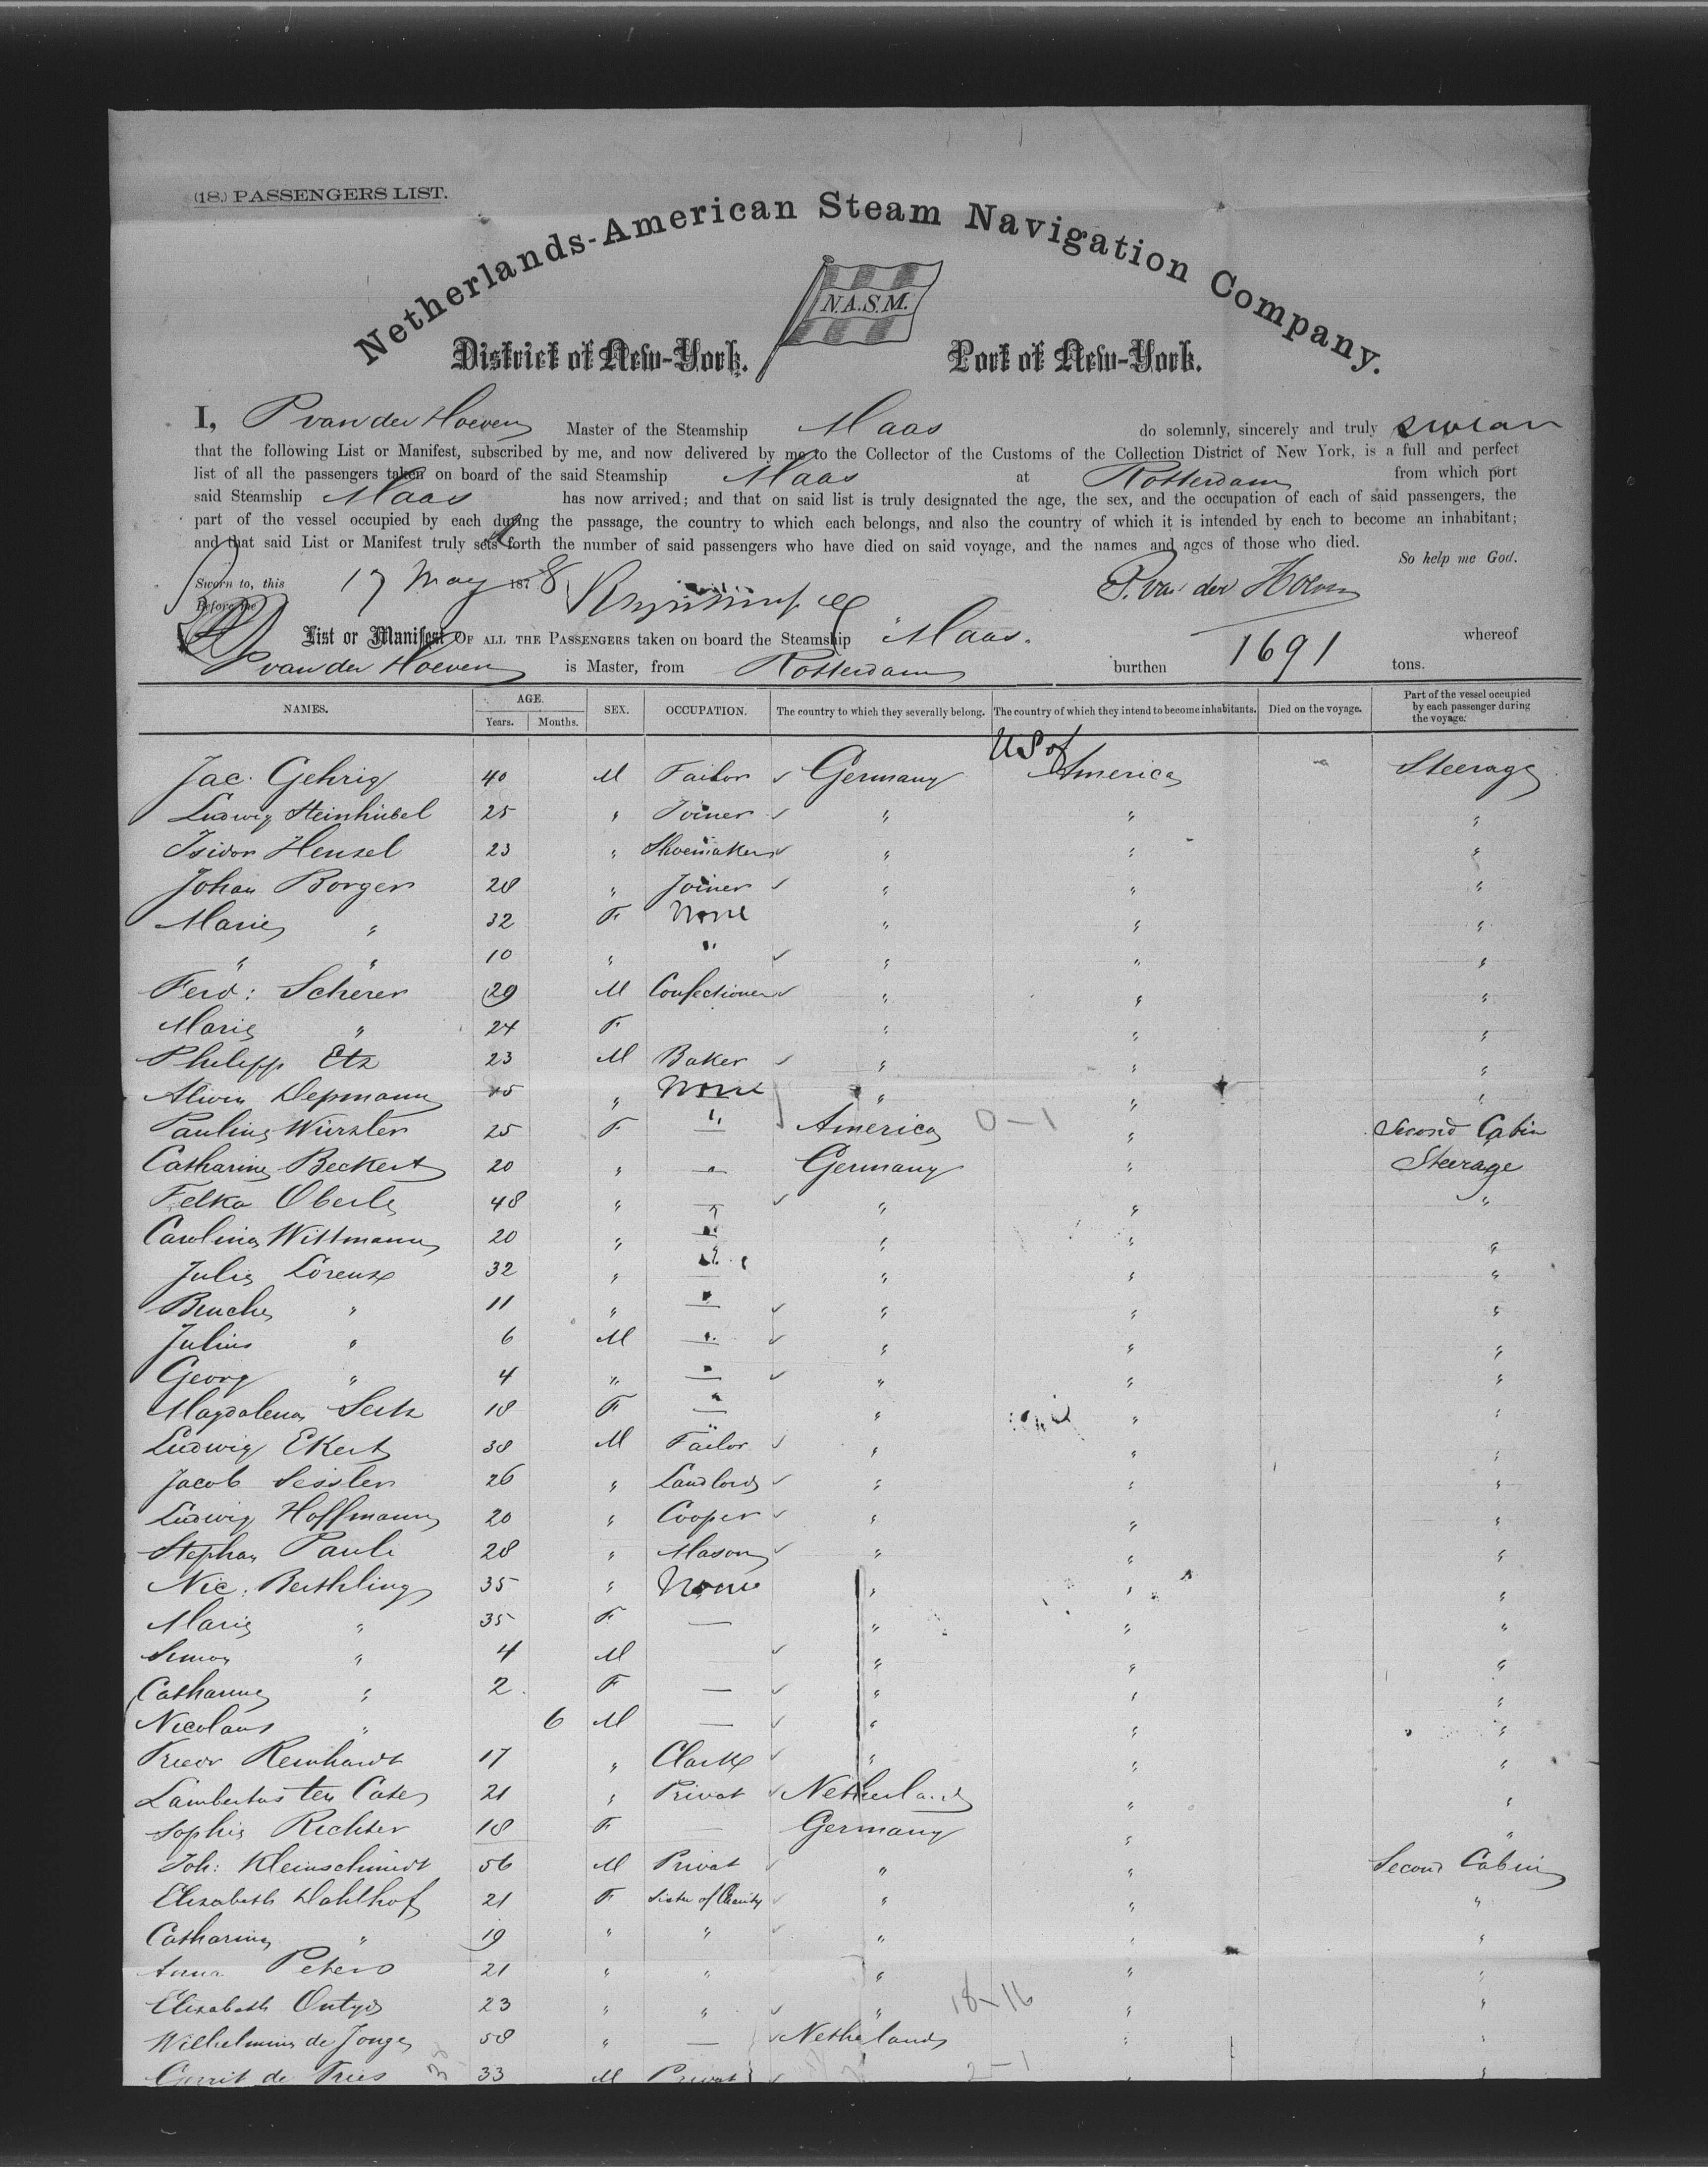 (18.) PASSENGERS LIST.
Netherlands-American Steam Navigation Company.
N.A.S.M.
District of New-York. Port of New-York.
I, P van der Hoeven Master of the Steamship Maas do solemnly, sincerely and truly swear
that the following List or Manifest, subscribed by me, and now delivered by me to the Collector of the Customs of the Collection District of New York, is a full and perfect
list of all the passengers taken on board of the said Steamship Maas at Rotterdam from which port
said Steamship Maas has now arrived; and that on said list is truly designated the age, the sex, and the occupation of each of said passengers, the
part of the vessel occupied by each during the passage, the country to which each belongs, and also the country of which it is intended by each to become an inhabitant;
and that said List or Manifest truly sets forth the number of said passengers who have died on said voyage, and the names and ages of those who died.
So help me God.
Sworn to, this 17 May 1878 P. van der Hoeven
Before me
List or Manifest OF ALL THE PASSENGERS taken on board the Steamship Maas. whereof
P van der Hoeven is Master, from Rotterdam burthen 1691 tons.
NAMES. AGE. Years. Months. SEX. OCCUPATION. The country to which they severally belong. The country of which they intend to become inhabitants. Died on the voyage. Part of the vessel occupied by each passenger during the voyage.
Jac. Gehrig 40 M Tailor Germany US of America Steerage
Ludwig Steinhübel 25 " Joiner " " "
Isidor Hensel 23 " Shoemaker " " "
Johan Borger 28 " Joiner " " "
Marie " 32 F None " " "
" " 10 " " " " "
Ferd: Scherer 29 M Confectioner " " "
Marie " 24 F " " "
Philipp Etz 23 M Baker " " "
Alwin Depmann " None " " "
Pauline Würzler 25 F " America 0-1 " Second Cabin
Catharine Beckert 20 " " Germany " Steerage
Felka Oberle 48 " " " " "
Caroline Wittmann 20 " " " " "
Julie Lorenz 32 " " " " "
" 11 " " " " "
Julius " 6 M " " " "
Georg " 4 " " " " "
Magdalena Seitz 18 F " " " "
Ludwig Ekert 38 M Tailor " " "
Jacob Sessler 26 " Landlord " " "
Ludwig Hoffmann 20 " Cooper " " "
Stephan Pauli 28 " Mason " " "
Nic: Berthling 35 " None " " "
Marie " 35 F — " " "
Simon " 4 M " " "
Catharine " 2 F — " " "
Nicolaus " 6 M — " " "
Reinhardt 17 " Clark " " "
Lambertus ten Cate 21 " Privat Netherland " "
Sophie Richter 18 F — Germany " "
Joh: Kleinschmidt 56 M Privat " " Second Cabin
Elizabeth Dahlhof 21 F Sister of Charity " " "
Catharine " 19 " " " " "
Anna Peters 21 " " " " "
Elizabeth 23 " " " 18-16 " "
Wilhelmina de Jonge 58 " — Netherlands " "
Gerrit de Vries 33 M Privat " 2-1 " "